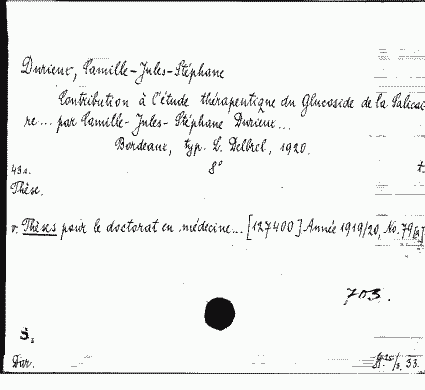 Durieux, Camille-Jules-Stéphane
Contribution à l'étude thérapeutique du Glucoside de la Salicai
re... par Camille-Jules-Stéphane Durieux...
Bordeaux, typ. L. Delbrel, 1920.
8°
43 s.
Thèse.
v. Thèses pour le doctorat en médecine... [127400] Année 1919/20, No. 79
703.
S.
Dar.
33.